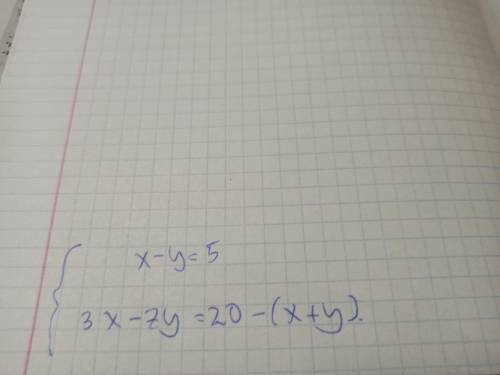 x-y=5
3x-7y=20-(x+y).